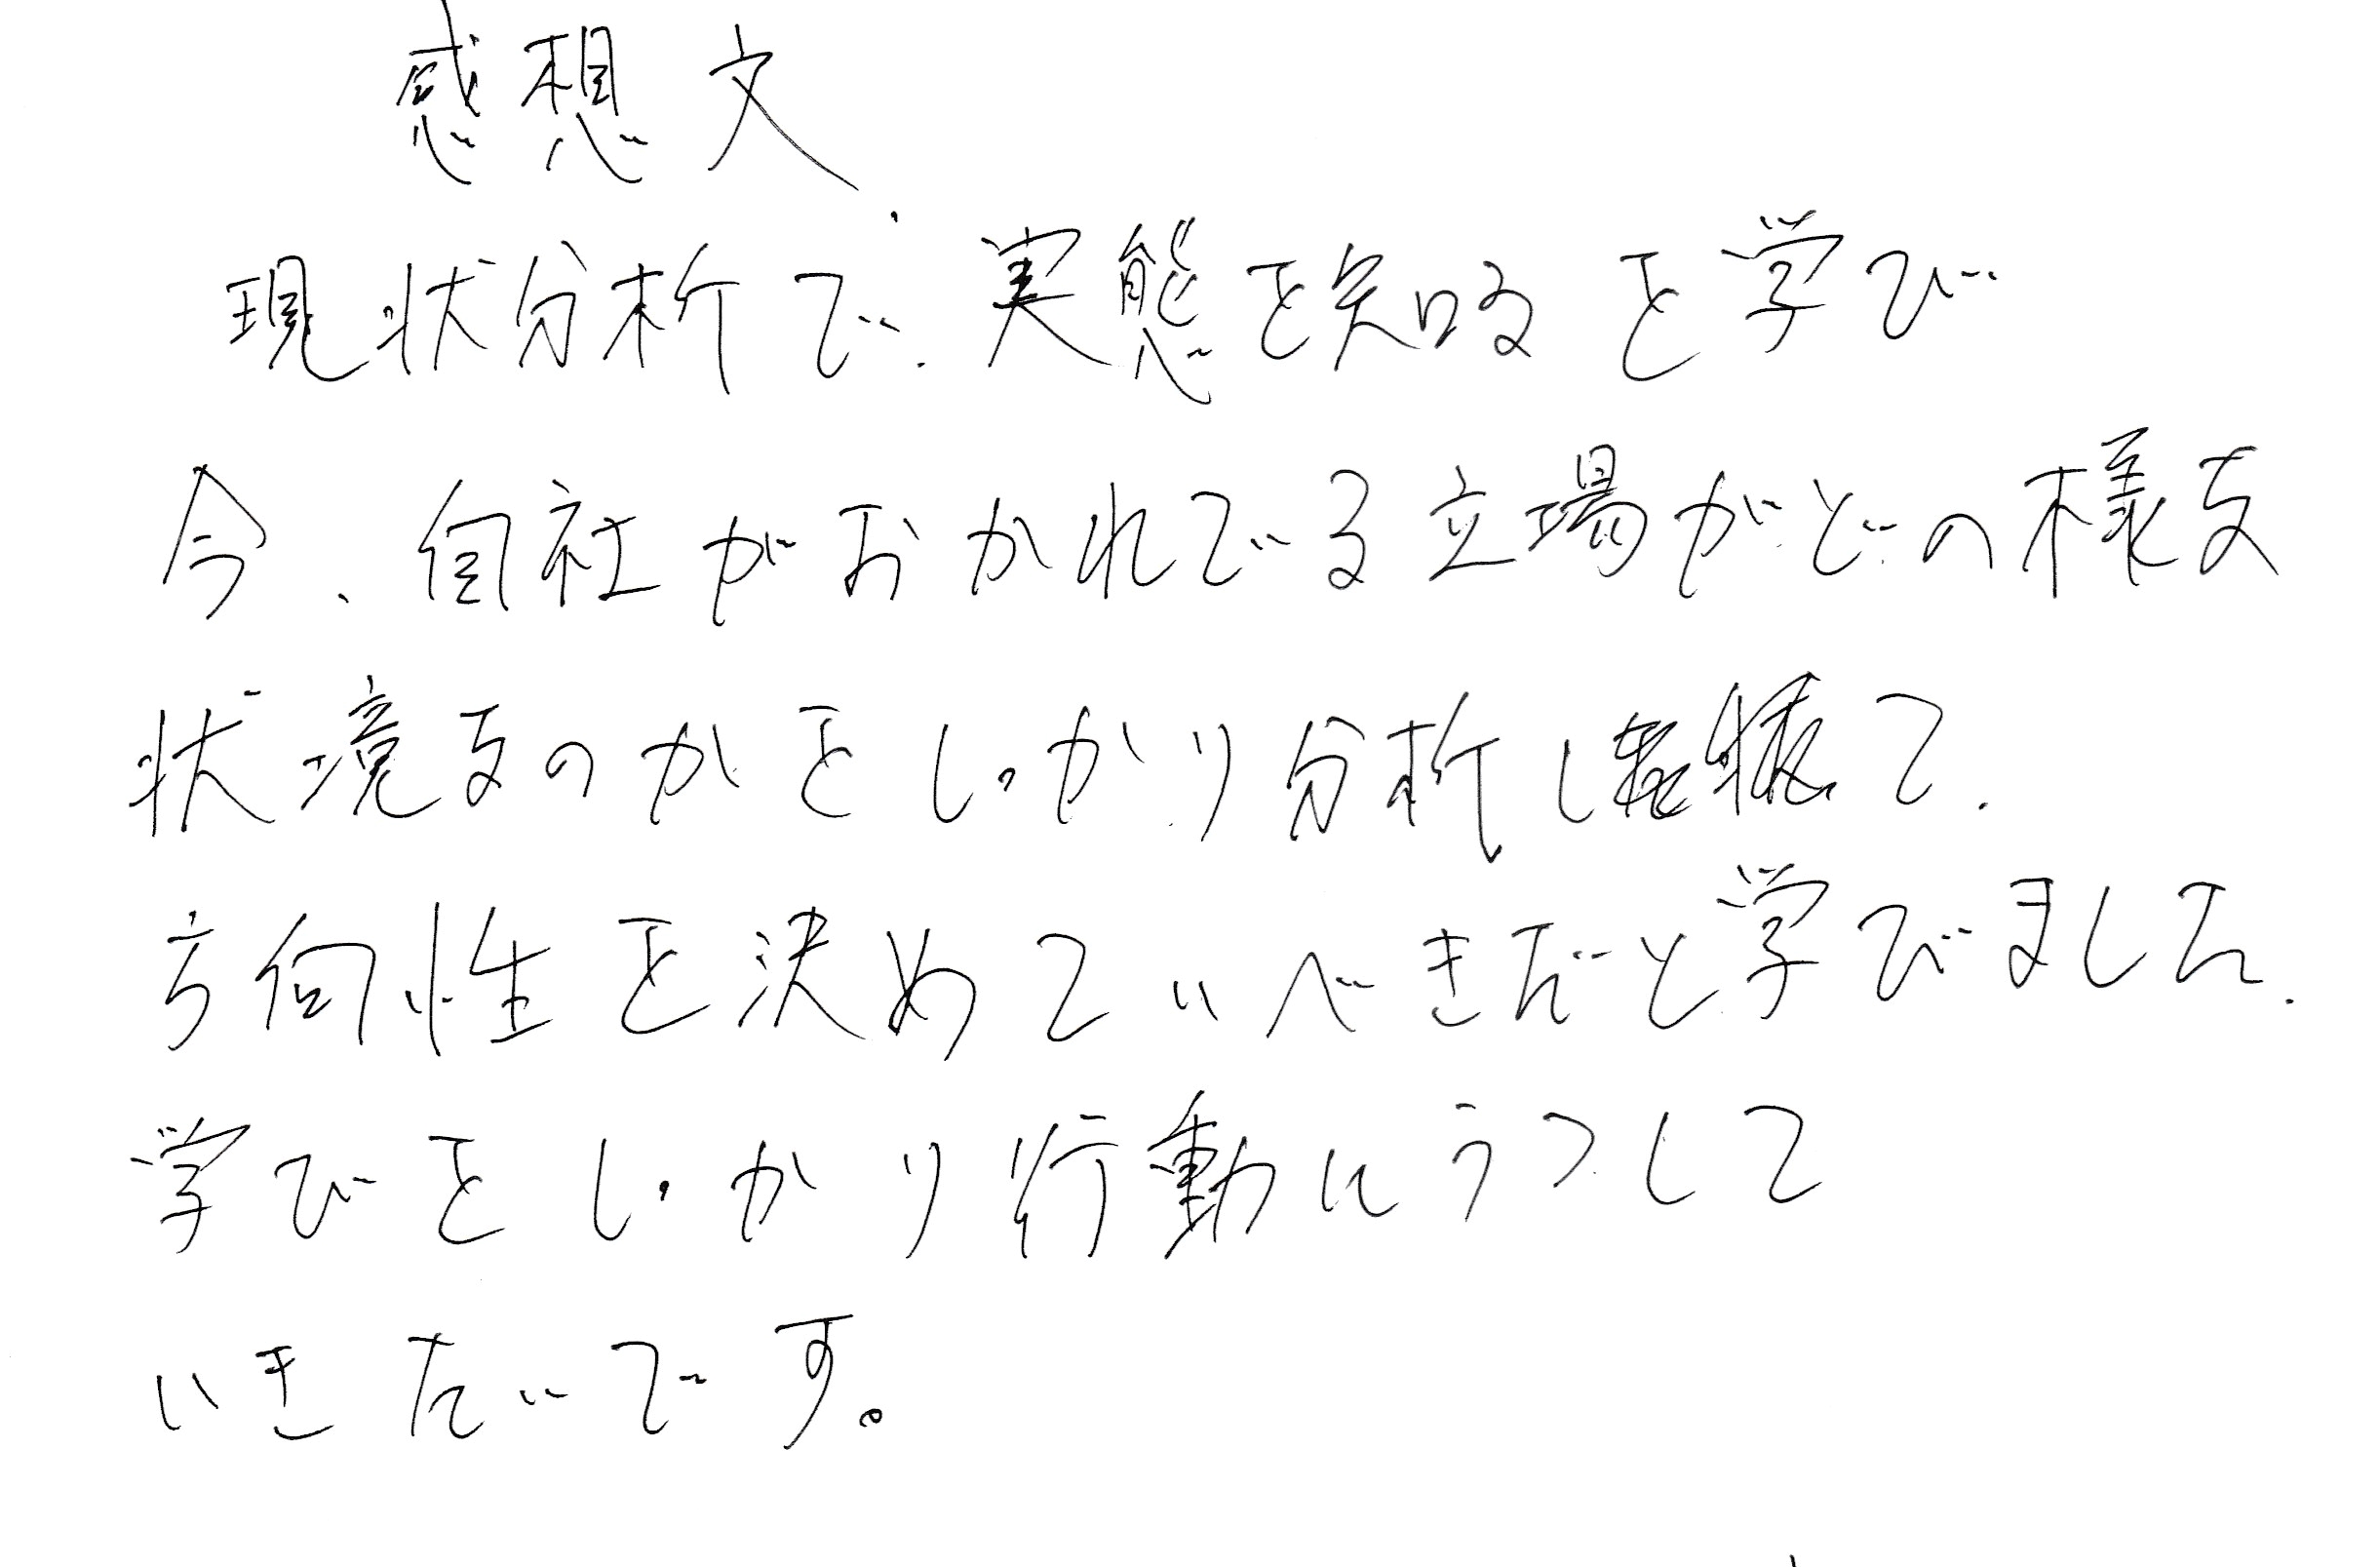 感想文
現状分析で、実態を知るを学び
今、自社がおかれている立場がどの様な
状境なのかをしっかり分析して、
方向性を決めていべきだと学びました。
学びをしっかり行動にうつして
いきたいです。